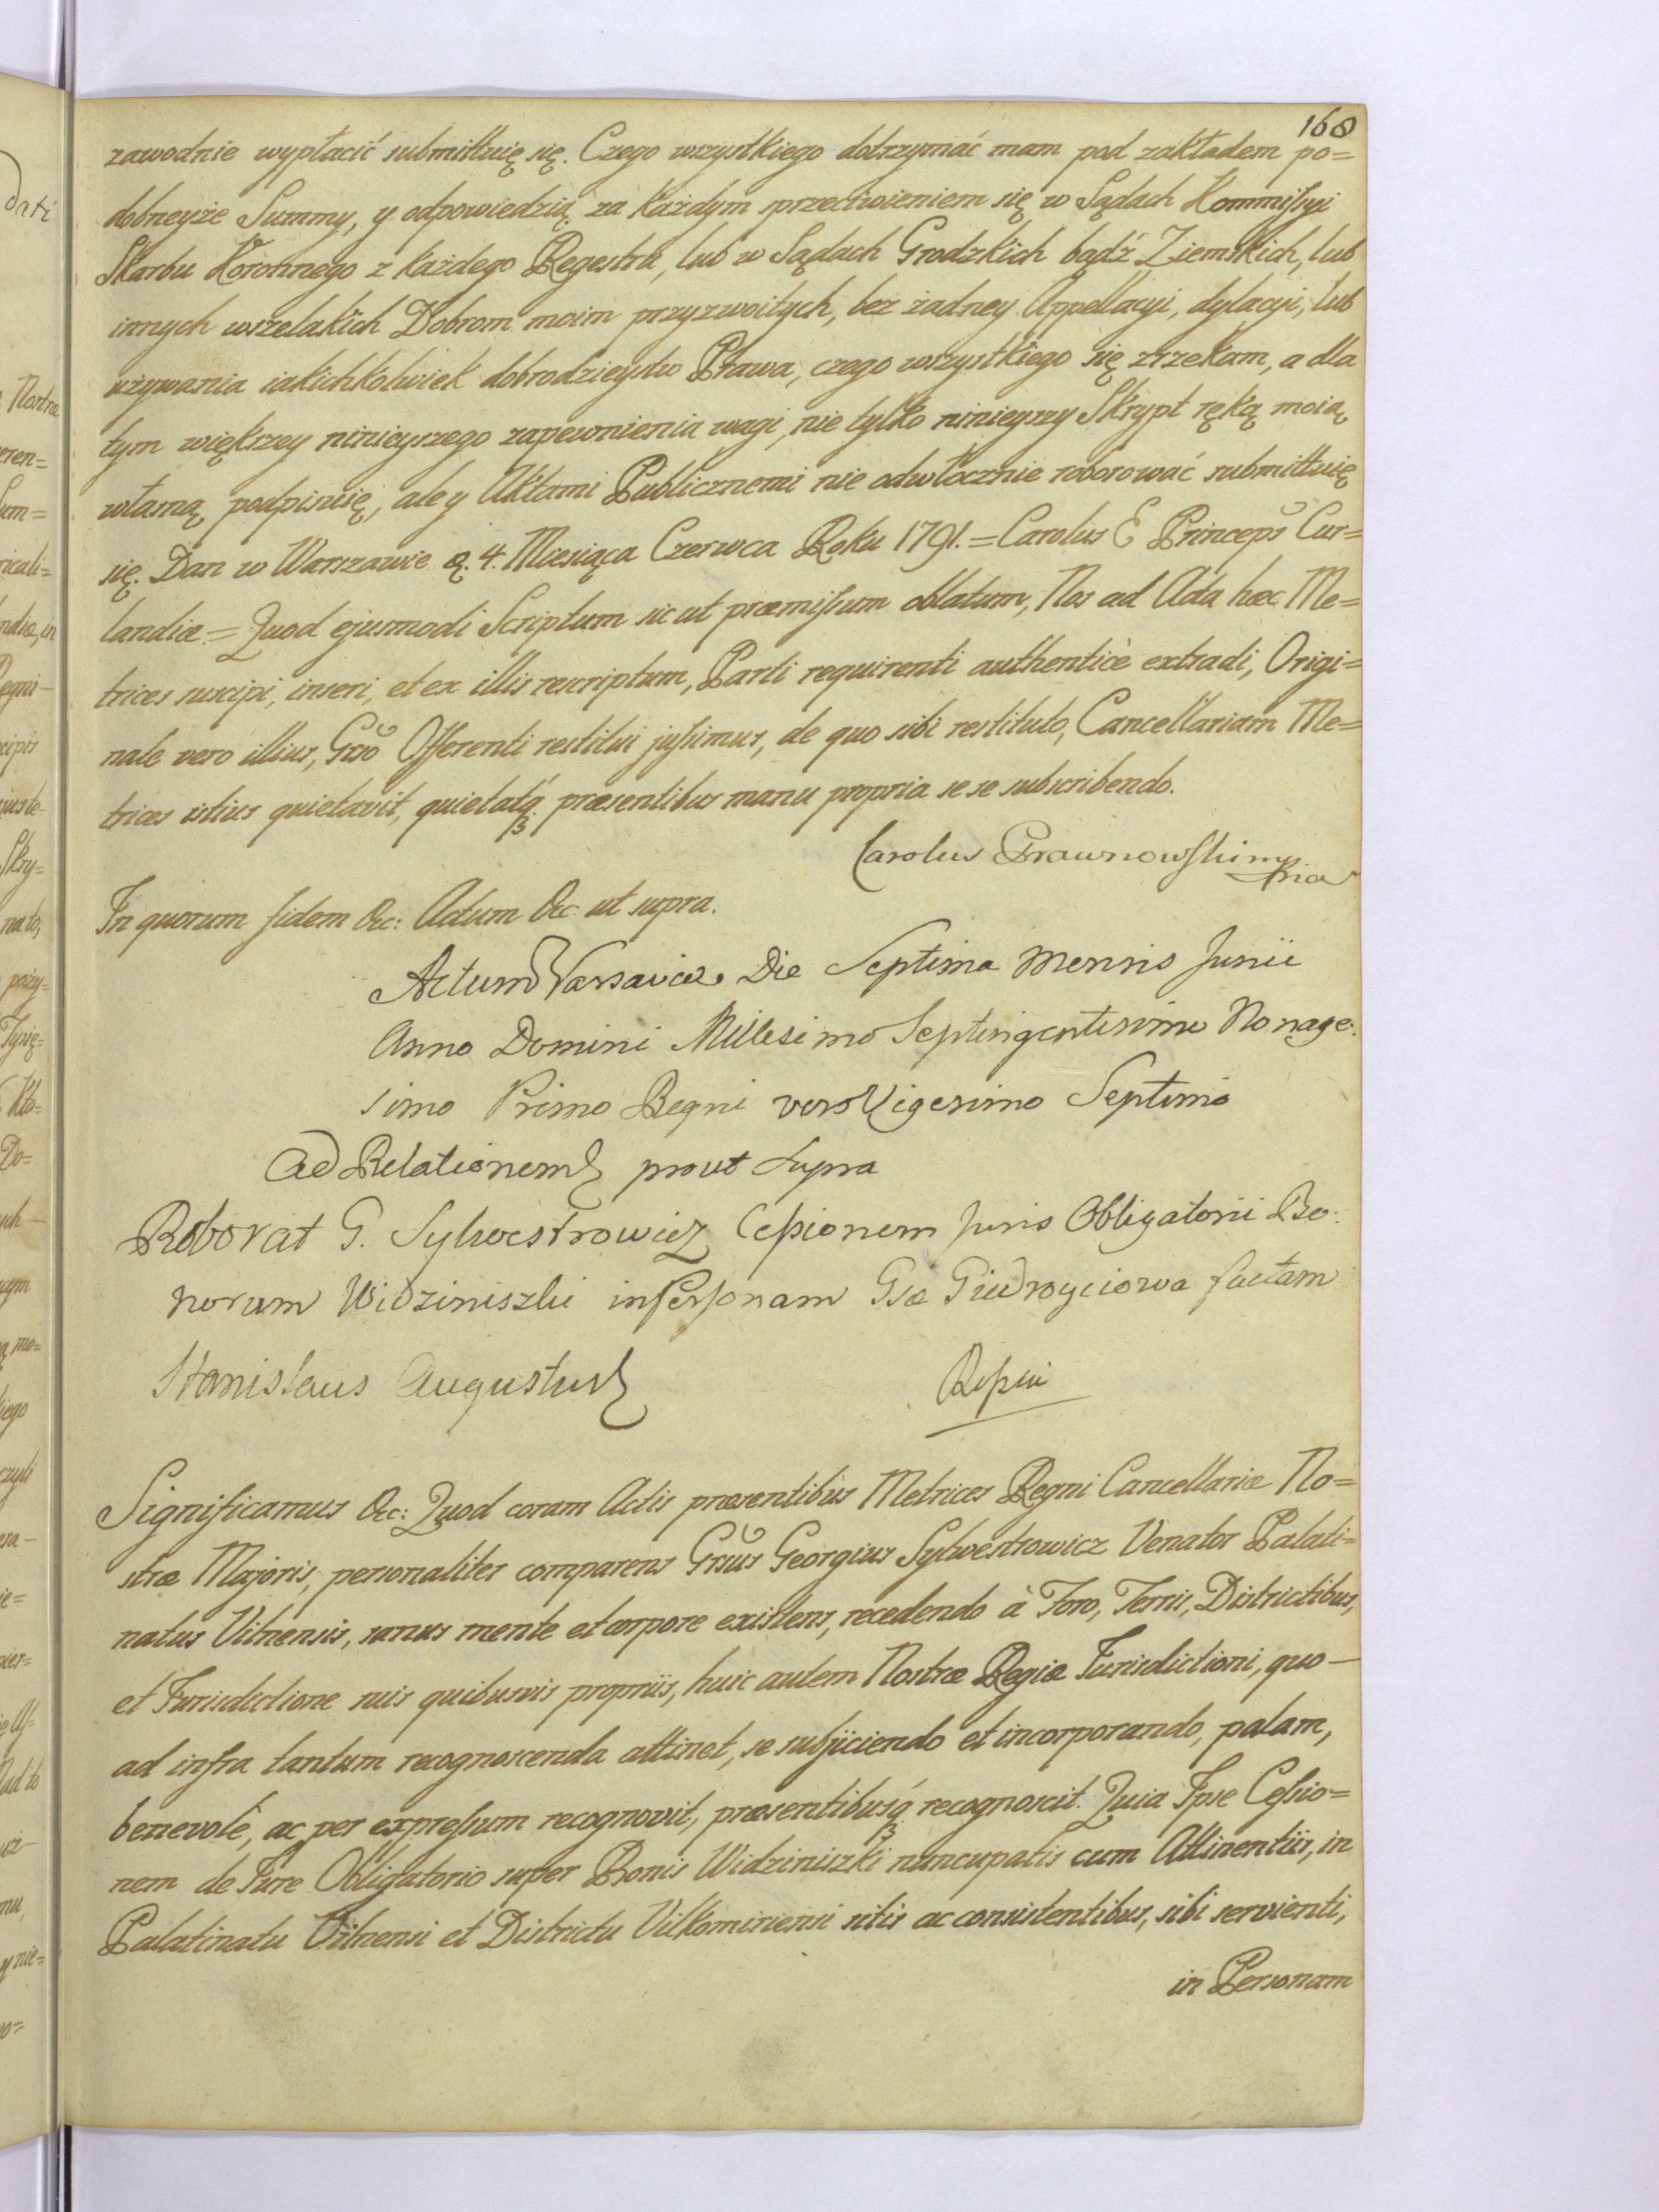 168
zawodnie wypłacić submittuię się. Czego wszystkiego dotrzymać mam pod zakładem po=
dobneyże Summy, y odpowiedzią za każdym sprzeciwieniem się w Sądach Kommissyi
Skarbu Koronnego z każdego Regestru, lub w Sądach Grodzkich bądź Ziemskich, lub
innych wszelakich Dobrom moim przyzwoitych, bez żadney Appellacyi, dylacyi, lub
używania iakichkolwiek dobrodzieystw Prawa, czego wszystkiego się zrzekam, a dla
tym większey ninieyszego zapewnienia wagi, nie tylko ninieyszy Skrypt ręką moią
własną podpisuię, ale y Aktami Publicznemi nie odwłocznie roborować submittuię
się. Dan w Warszawie d. 4. Miesiąca Czerwca Roku 1791. = Carolus E Princeps Cur=
landiæ = Quod ejusmodi Scriptum sic ut præmissum oblatum, Nos ad Acta hæc Me=
trices suscipi, inseri, et ex illis rescriptum, Parti requirenti authenticè extradi, Origi=
nale vero illius, Grso Offerenti restitui jussimus, de quo sibi restituto, Cancellariam Me=
trices istius quietavit, quietatq3 præsentibus manu propria se se subscribendo.
Carolus Prawnowski mp
pria
In quorum fidem &c: Actum &c: ut supra.
Actum Varsaviæ Die Septima Mensis Junii
Anno Domini Millesimo Septingentesimo Nonage:
simo Primo Regni vero Vigesimo Septimo
Ad Relationem prout Supra
Roborat G. Sylwestrowicz Cessionem Juris Obligatorii Bo:
norum Widziniszki in Personam Gsæ Giedroyciowa factam
Stanislaus Augustus
Significamus &c: Quod coram Actis præsentibus Metrices Regni Cancellariæ No=
stræ Majoris, personaliter comparens Grsus Georgius Sylwestrowicz Venator Palati=
natus Vilnensis, sanus mente et corpore existens, recedendo à Foro, Terris, Districtibus,
et Jurisdictione suis quibusvis propriis, huic autem Nostræ Regiæ Jurisdictioni, quo—
ad infra tantum recognoscenda attinet, se subjiciendo et incorporando, palam,
benevolè, ac per expressum recognovit, præsentibusq3 recognoscit. Quia Ipse Cessio=
nem de Jure Obligatorio super Bonis Widziniszki nuncupatis cum Attinentiis, in
Palatinatu Vilnensi et Districtu Vilkomiriensi sitis ac consistentibus, sibi servienti,
in Personam